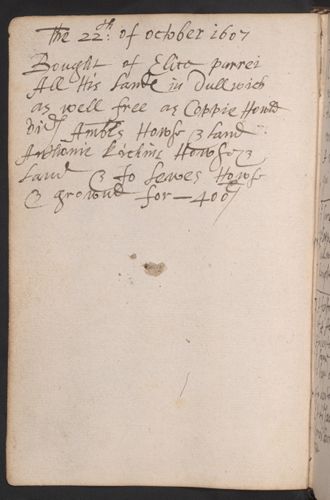 The 22th: of october 1607
Bought of Elice parrei
All His Lande in Dullwich
as well free as Coppie Hould
Howse & land
Anthonie Howse &
land & Jo Lewes Howse
& ground for - 400l